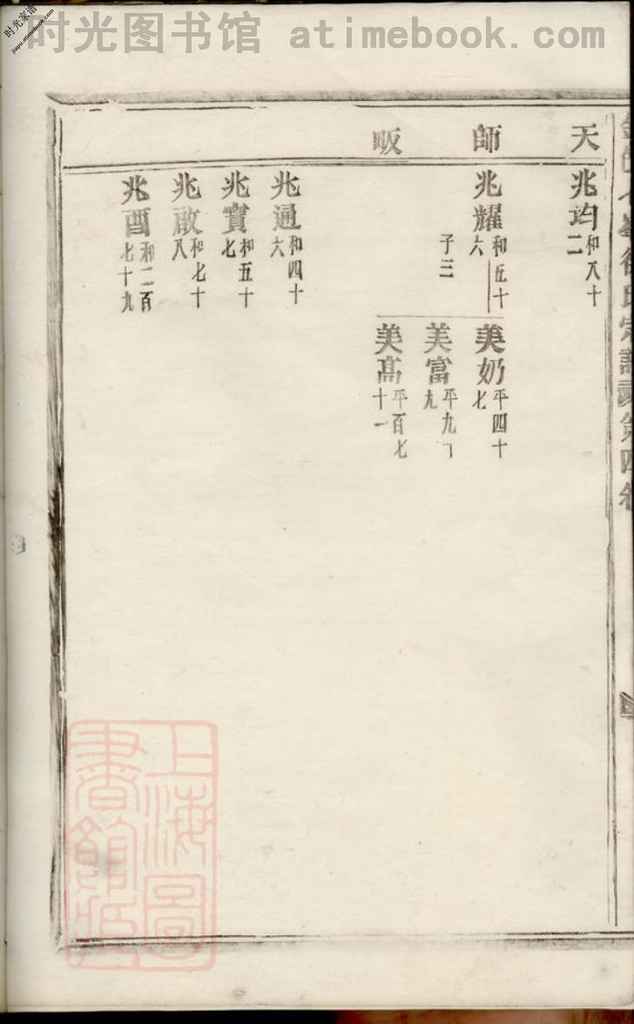 时光图书馆 atimebook.com
时光家谱
天師畈
兆均
和八十二
兆耀
和五十六
子三
美奶
平四十七
美富
美高
平百七十一
兆通
和四十六
兆實
和五十七
兆啟
和七十八
兆酉
和二百七十九
上海圖書館